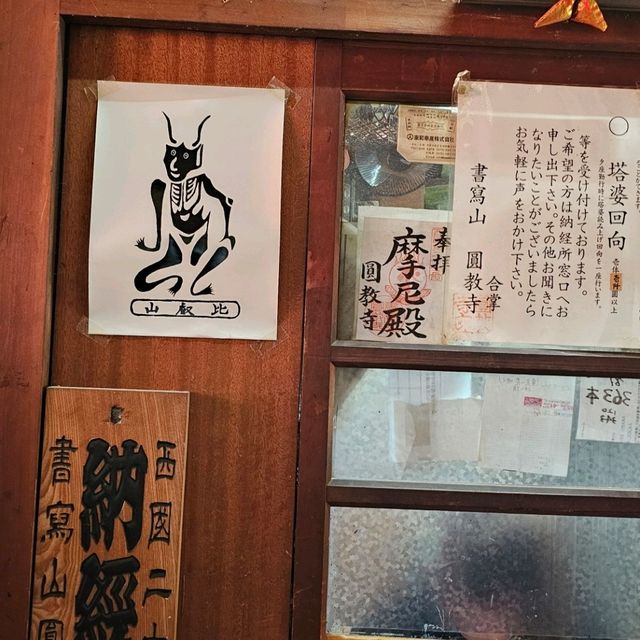 山叡比
西国二十
納経
書寫山圓
奉拝
摩尼殿
圓教寺
塔婆回向
等を受け付けております。
ご希望の方は納経所窓口へお
申し出下さい。その他お聞きに
なりたいことがございましたら
お気軽に声をおかけ下さい。
合掌
書寫山 圓教寺
363本